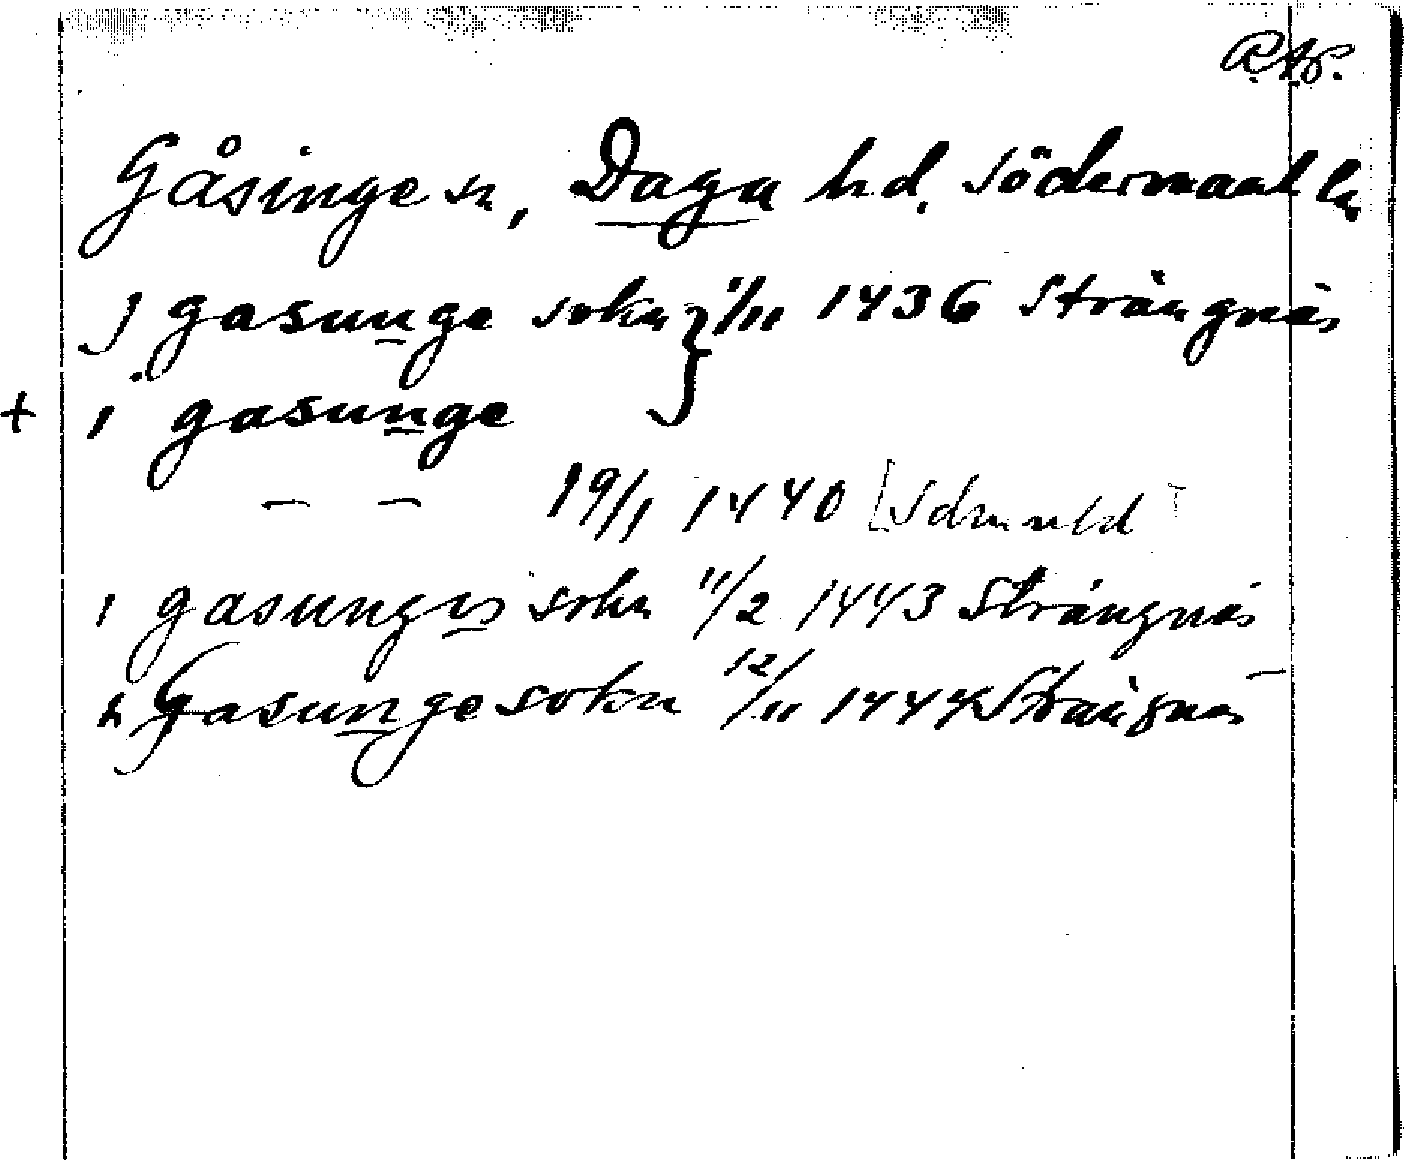 R.A.P.
Gåsinge sn, Daga hd. Södermanl ln
J gasunge sokn } 1/11 1436 Strängnäs
+ i gasunge
— — 19/1 1440 [Sdmnld]
i gasungis sokn 11/2 1443 Strängnäs
h Gasunge sokn 12/11 1444 Strängnäs